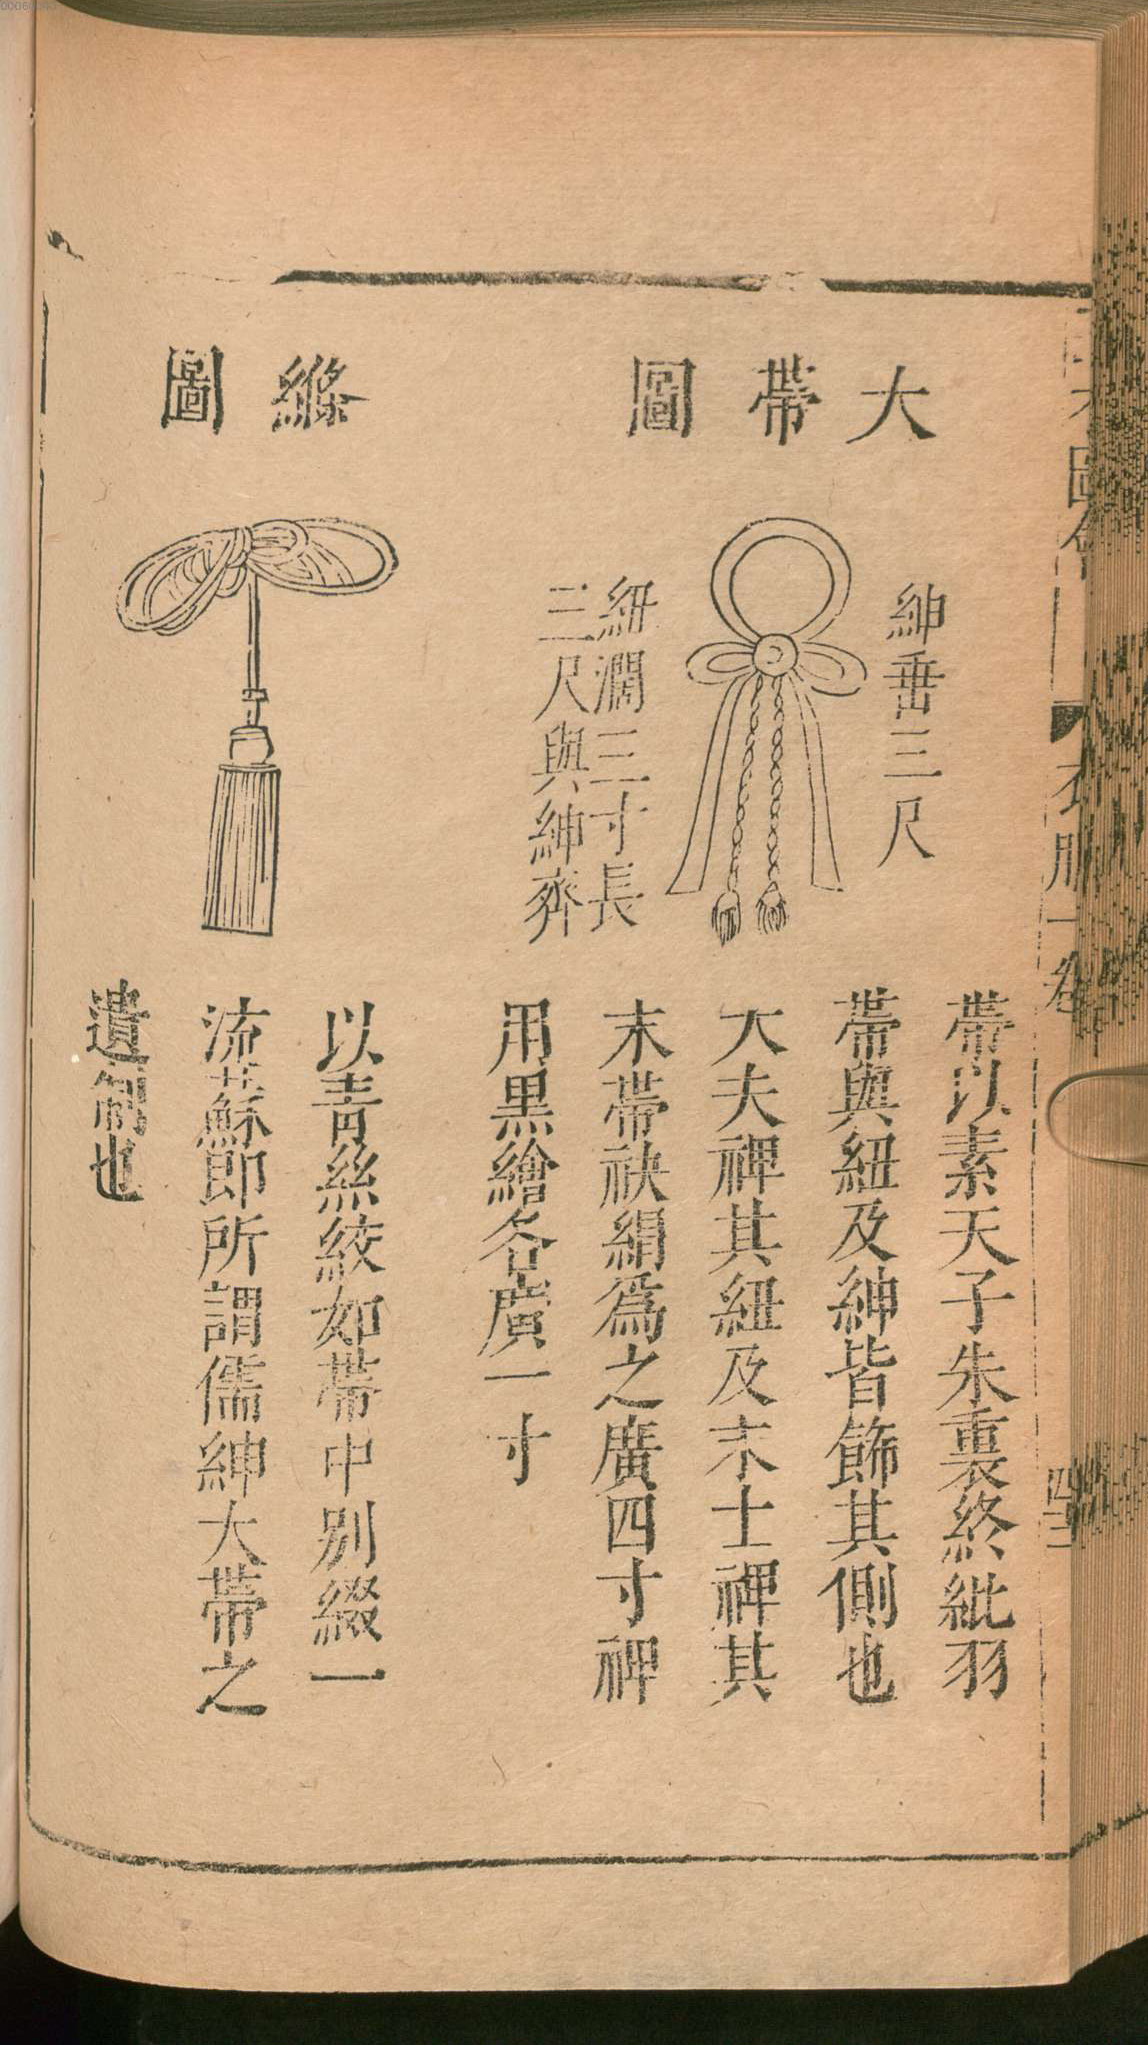 大帶圖
紳垂三尺
紐濶三寸長
三尺與紳齊
帶以素天子朱裏終紕羽
帶與紐及紳皆飾其側也
大夫裨其紐及末士裨其
末帶袂絹爲之廣四寸裨
用黒繒各廣一寸
絛圖
以青絲絞如帶中別綴一
流蘇即所謂儒紳大帶之
遺制也